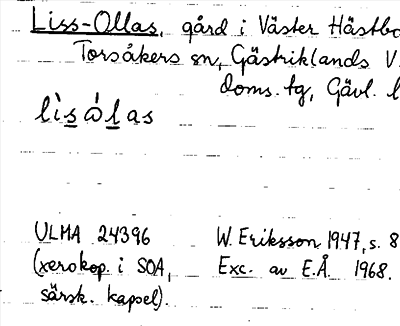 Liss-Ollas, gård i Väster Hästbo
Torsåkers sn, Gästriklands V.
doms. tg, Gävl. l
ULMA 24396
(xerokop. i SOA,
särsk. kapsel).
W. Eriksson 1947, s. 8
Exc. av E.Å. 1968.